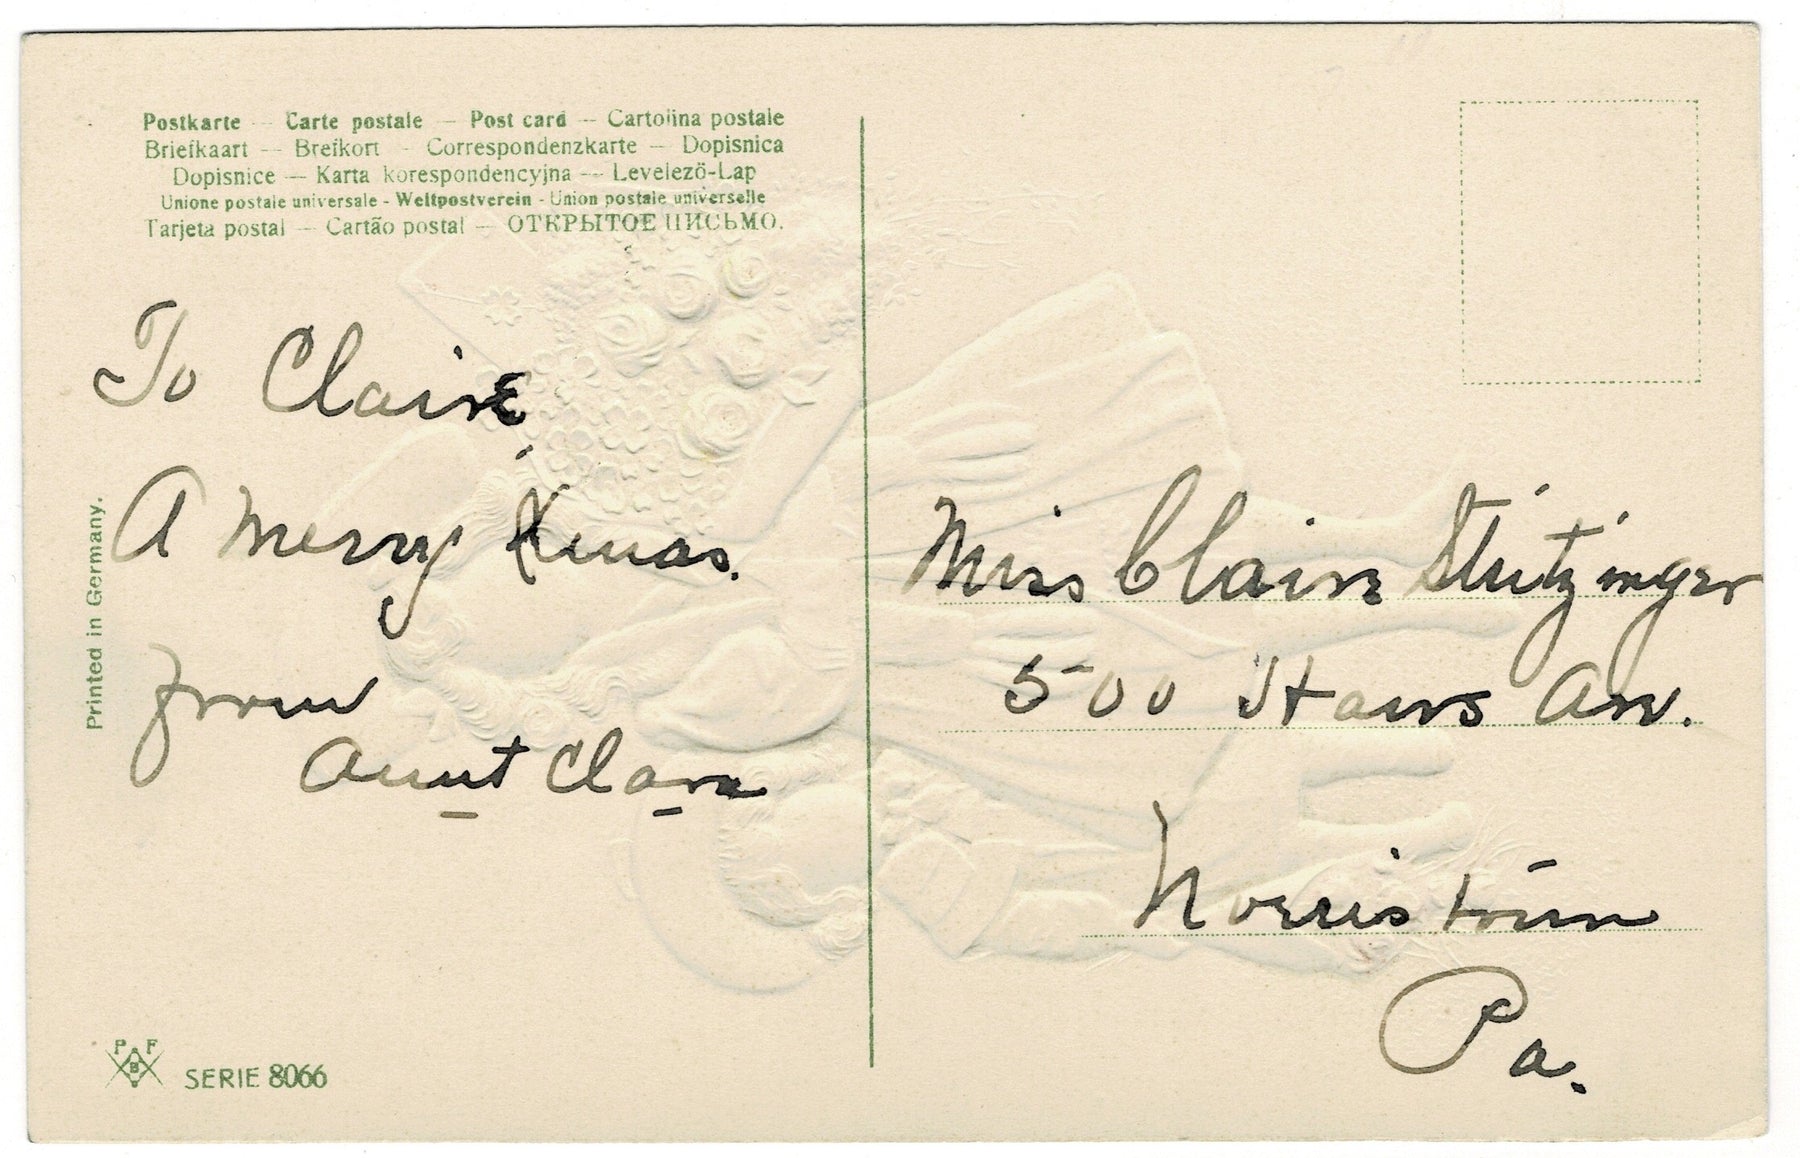 Postkarte — Carte postale — Post card — Cartolina postale
Briefkaart — Brefkort - Correspondenzkarte — Dopisnica
Dopisnice — Karta korespondencyjna — Levelezö-Lap
Unione postale universale - Weltpostverein - Union postale universelle
Tarjeta postal — Cartão postal — ОТКРЫТОЕ ПИСЬМО.
To Claire
A Merry Xmas.
from
Aunt Clara
Printed in Germany.
P F
B
SERIE 8066
Miss Claire Stritzinger
500 Haws Av.
Norristown
Pa.